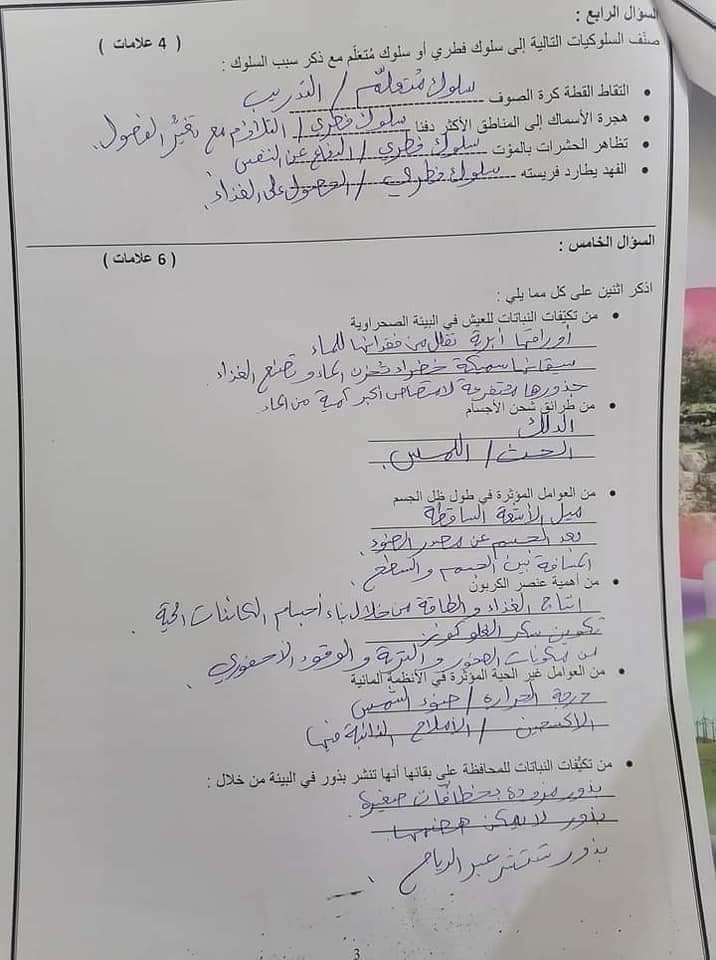 السؤال الرابع :
( 4 علامات )
صنّف السلوكيات التالية إلى سلوك فطري أو سلوك مُتعلّم مع ذكر سبب السلوك :
• التقاط القطة كرة الصوف سلوك مُتعلّم / التدريب
• هجرة الأسماك إلى المناطق الأكثر دفئا سلوك فطري / التلاؤم مع تغيّر الفصول.
• تظاهر الحشرات بالموت سلوك فطري / الدفاع عن النفس
• الفهد يطارد فريسته سلوك فطري / الحصول على الغذاء.
السؤال الخامس :
( 6 علامات )
اذكر اثنين على كل مما يلي :
• من تكيّفات النباتات للعيش في البيئة الصحراوية
أوراقها أبرية تقلل من فقدانها للماء
سيقانها سميكة خضراء تخزن الماء و تصنع الغذاء.
جذورها متفرعة لامتصاص أكبر كمية من الماء
• من طرائق شحن الأجسام
الدلك
الحث / اللمس.
• من العوامل المؤثرة في طول ظل الجسم
ميل الأشعة الساقطة
بعد الجسم عن مصدر الضوء.
المسافة بين الجسم والسطح.
• من أهمية عنصر الكربون
انتاج الغذاء و الطاقة من خلال بناء أجسام الكائنات الحية.
تكوين سكر الغلوكوز
من مكونات الصخور و التربة و الوقود الأحفوري.
• من العوامل غير الحية المؤثرة في الأنظمة المائية
درجة الحرارة / ضوء الشمس
الاكسجين / الأملاح الذائبة فيها
• من تكيّفات النباتات للمحافظة على بقائها أنها تنشر بذور في البيئة من خلال :
بذور مزودة بخطافات صغيرة
بذور لا يمكن هضمها.
بذور تنتشر عبر الرياح.
3